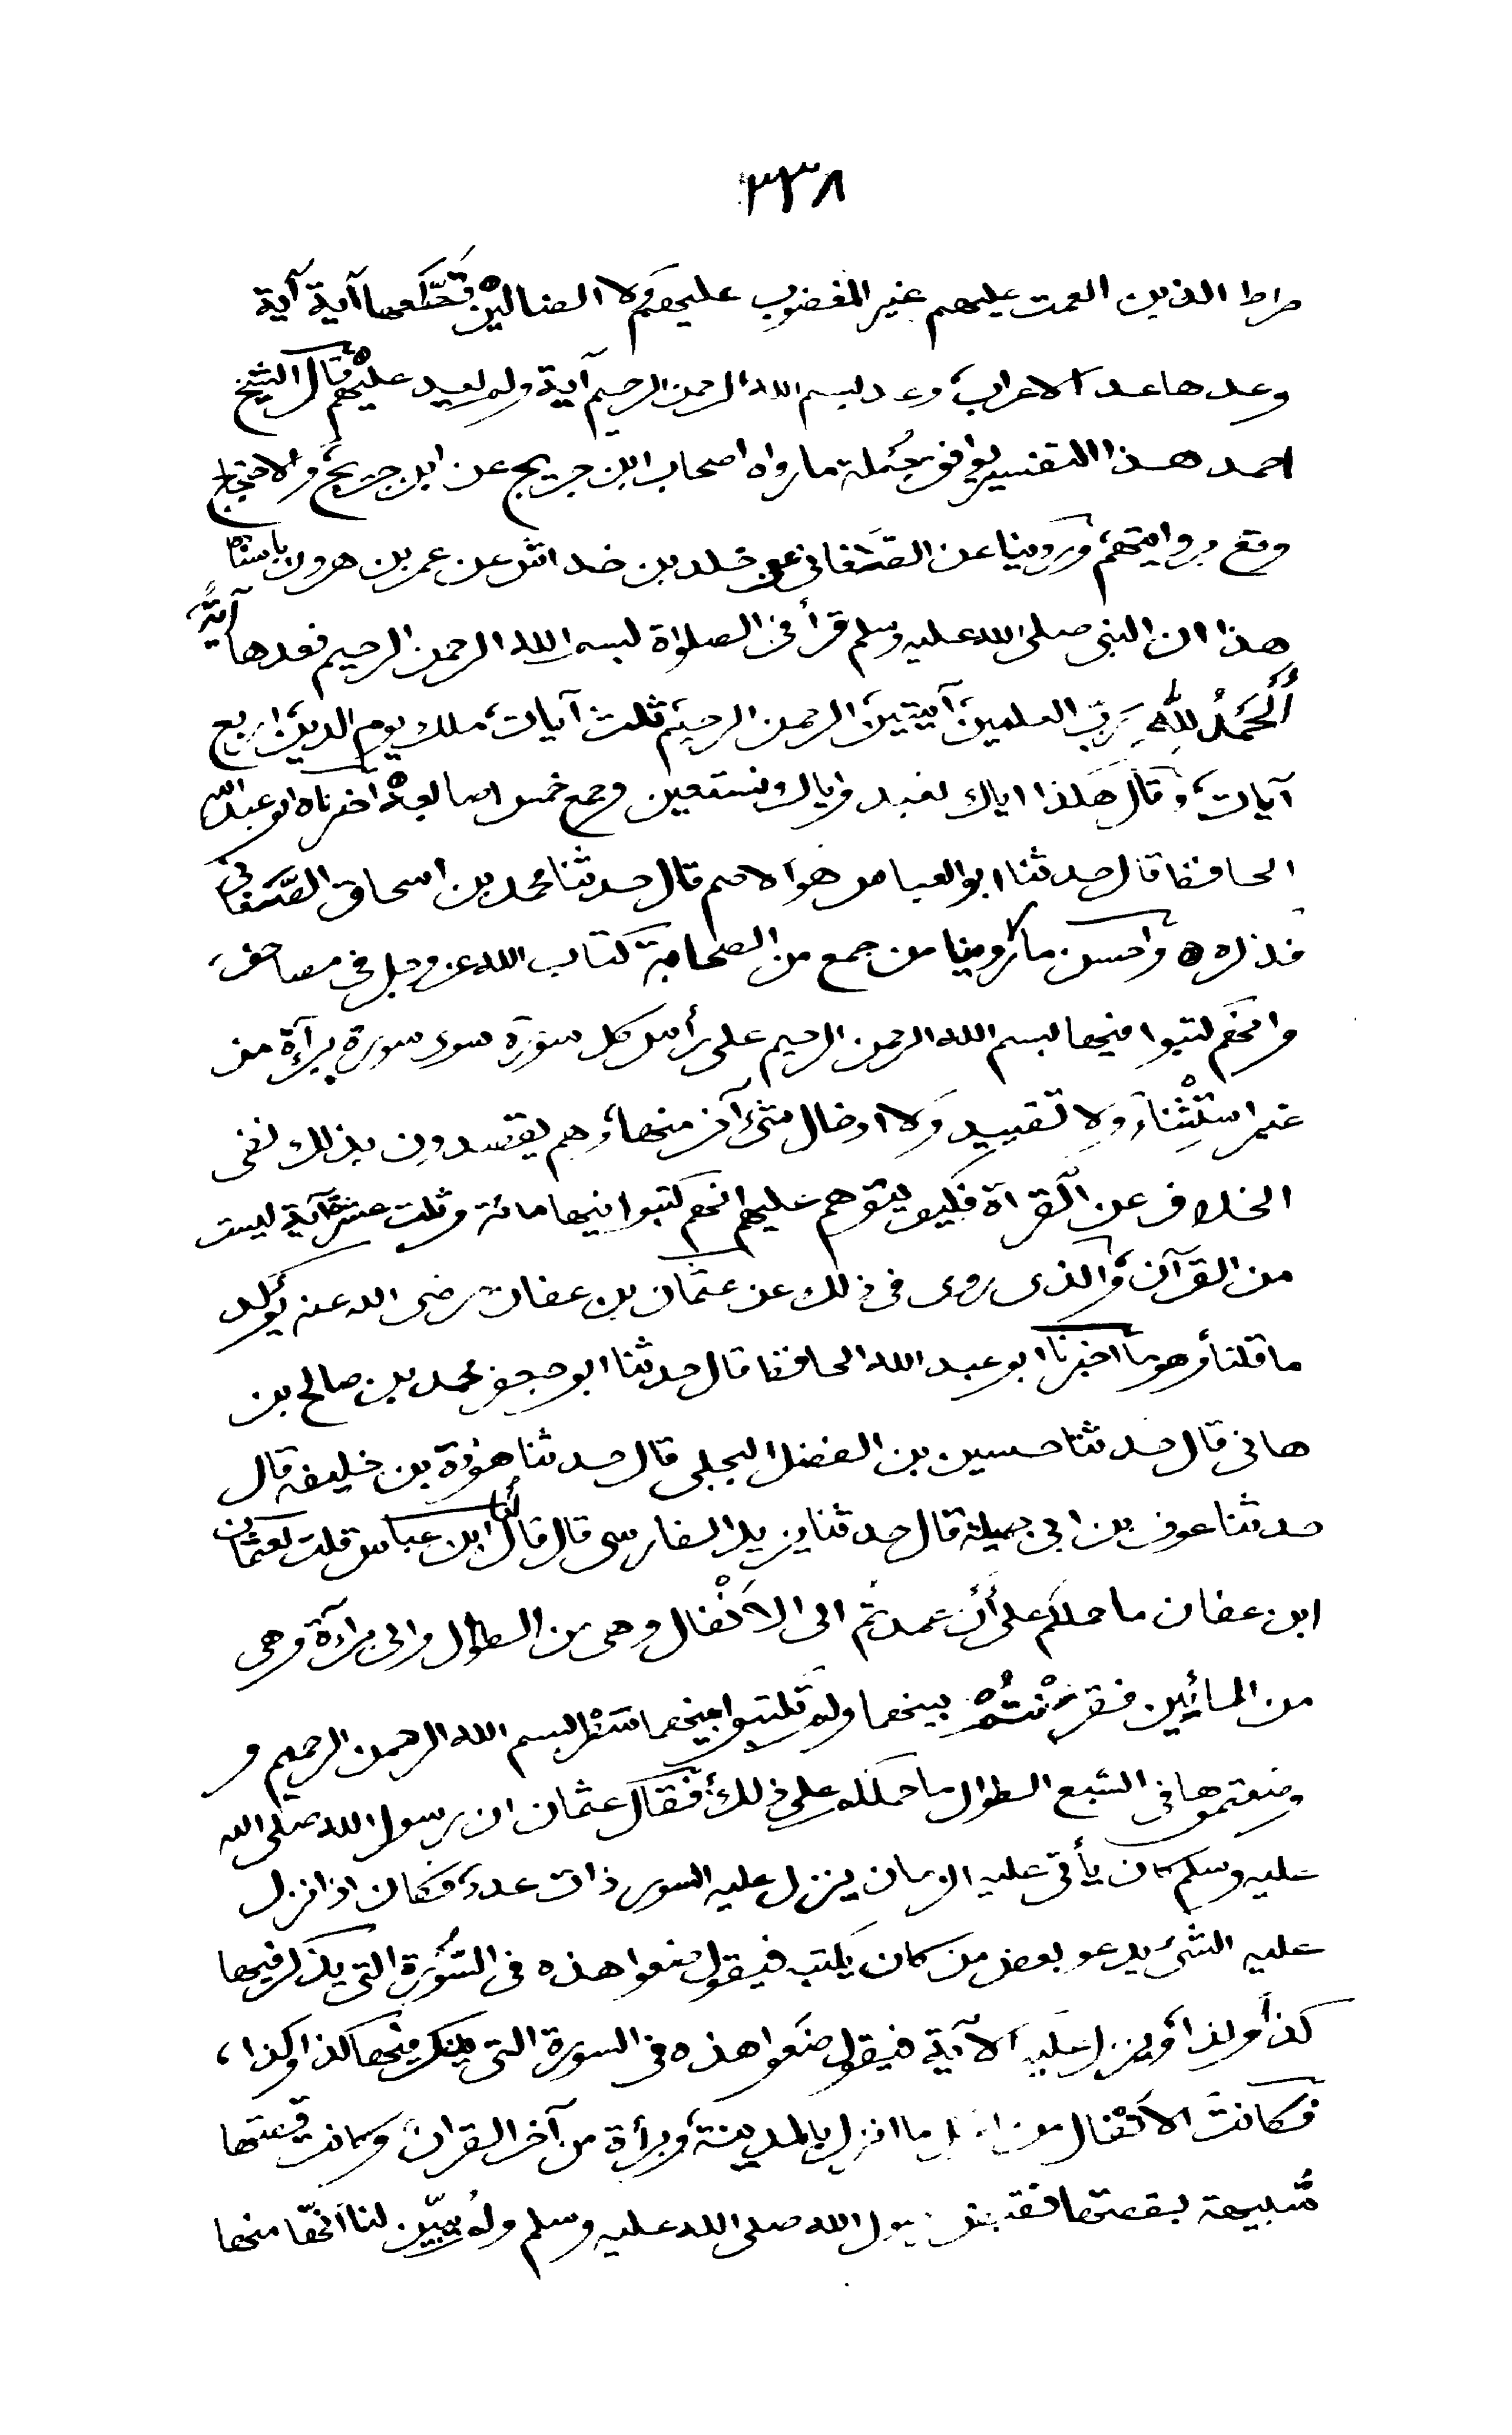 ٣٣٨
صراط الذين انعمت عليهم غير المغضوب عليهم ولا الضالين فقطعها آية آية
وعدها عد الاعراب، وعد بسم الله الرحمن الرحيم آية ولم يعد عليهم قال الشيخ
احمد هذا التفسير يوافق جملة ما رواه اصحاب ابن جريج عن ابن جريج، والاحتجاج
وقع بروايتهم، وروينا عن الصّغاني عن خلد بن خداش عن عمر بن هرون باسناد
هذا ان النبى صلى الله عليه وسلم قرأ فى الصلوٰة بسم الله الرحمن الرحيم فعدها آيةً،
أَلْحَمْدُ لِلّهِ رَبِّ العلمين، آيتين، الرحمن الرحيم ثلث آيات، ملك يوم الدين، اربع
آيات، وقال هكذا اياك نعبد واياك نستعين وجمع خمس اصابعه اخبرناه ابو عبد الله
الحافظ قال حدثنا ابو العباس هو الاصم قال حدثنا محمد بن اسحاق الصَّغانى
فذكره ه واحسن ما روينا من جمع من الصحابة كتاب الله عز وجل فى مصاحف،
وانهم كتبوا فيها بسم الله الرحمن الرحيم على رأس كل سورة سوى سورة برآءة من
غير استثناء ولا تقييد ولا ادخال شئ آخر منها، وهم يقصدون بذلك نفى
الخلاف عن القراة فكيف يتوهم عليهم انهم كتبوا فيها مائة وثلث عشرة آية ليست
من القرآن، والذى روى فى ذلك عن عثمان بن عفان رضى الله عنه يؤكد
ما قلنا وهو ما اخبرنا ابو عبد الله الحافظ قال حدثنا ابو جعفر محمد بن صالح بن
هانى قال حدثنا حسين بن الفضل البجلى قال حدثنا هوذة بن خليفه قال
حدثنا عوف بن ابى جميلة قال حدثنا يزيد الفارسى قال قال لنا ابن عباس قلت لعثمان
ابن عفان ما حملكم على أن عمدتم الى الانْفال وهى من الطول والى برآءة وهى
من المائين فقرنْتُمْ بينهما ولم تكتبوا بينهما سَطْر بسم الله الرحمن الرحيم و
وضعتموها فى السّبع الطوال ما حملكم على ذلك، فقال عثمان ان رسول الله صلى الله
عليه وسلم كان يأتى عليه الزمان ينزل عليه السور ذات عدد، فكان اذا نزل
عليه الشئ يدعو بعض من كان يكتب فيقول ضعوا هذه فى السُّورة التى يذكر فيها
كذا وكذا، وينزل عليه الآية فيقول ضعوا هذه فى السورة التى يذكر فيها كذا وكذا،
فكانت الانْفال من اول ما انزل بالمدينة، وبرأة من آخر القرآن وكانت قصتها
شبيهة بقصتها فقبض رسول الله صلى الله عليه وسلم ولم يبيّن لنا انّها منها